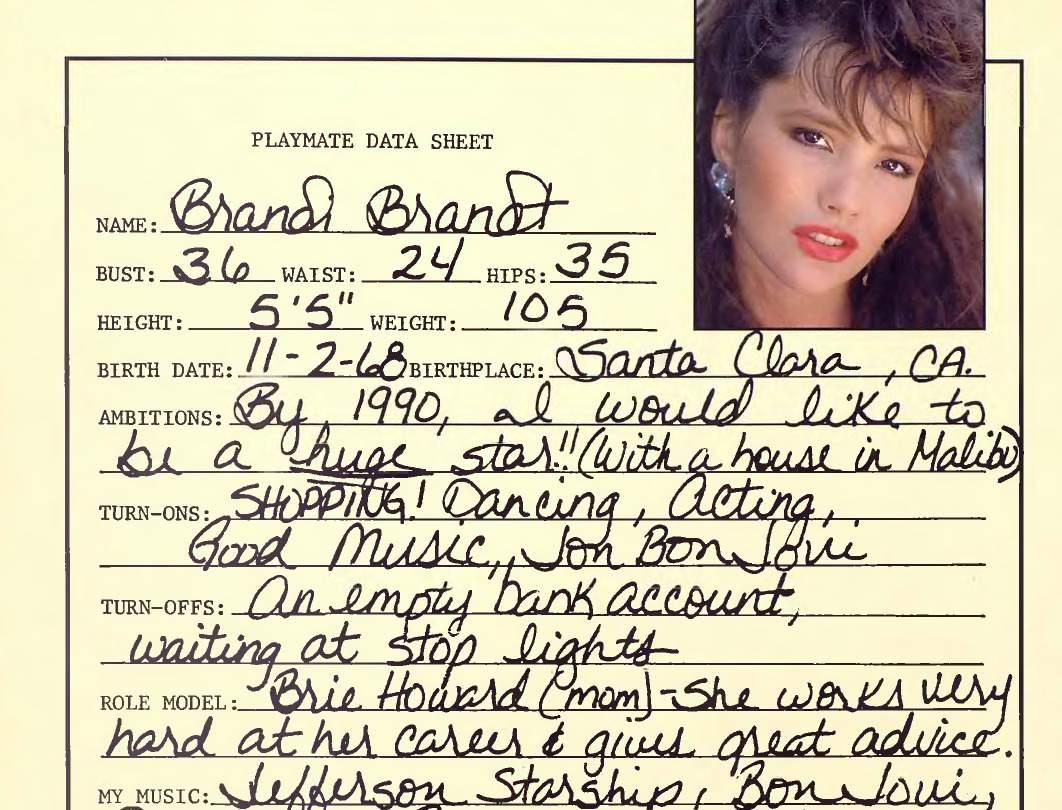 PLAYMATE DATA SHEET
NAME: Brandi Brandt
BUST: 36 WAIST: 24 HIPS: 35
HEIGHT: 5'5" WEIGHT: 105
BIRTH DATE: 11-2-68 BIRTHPLACE: Santa Clara, CA.
AMBITIONS: By 1990, I would like to
be a huge star!! (With a house in Malibu)
TURN-ONS: SHOPPING! Dancing, Acting,
Good Music, Jon Bon Jovi
TURN-OFFS: An empty bank account,
waiting at stop lights
ROLE MODEL: Brie Howard (mom) - She works very
hard at her career & gives great advice.
MY MUSIC: Jefferson Starship, Bon Jovi,